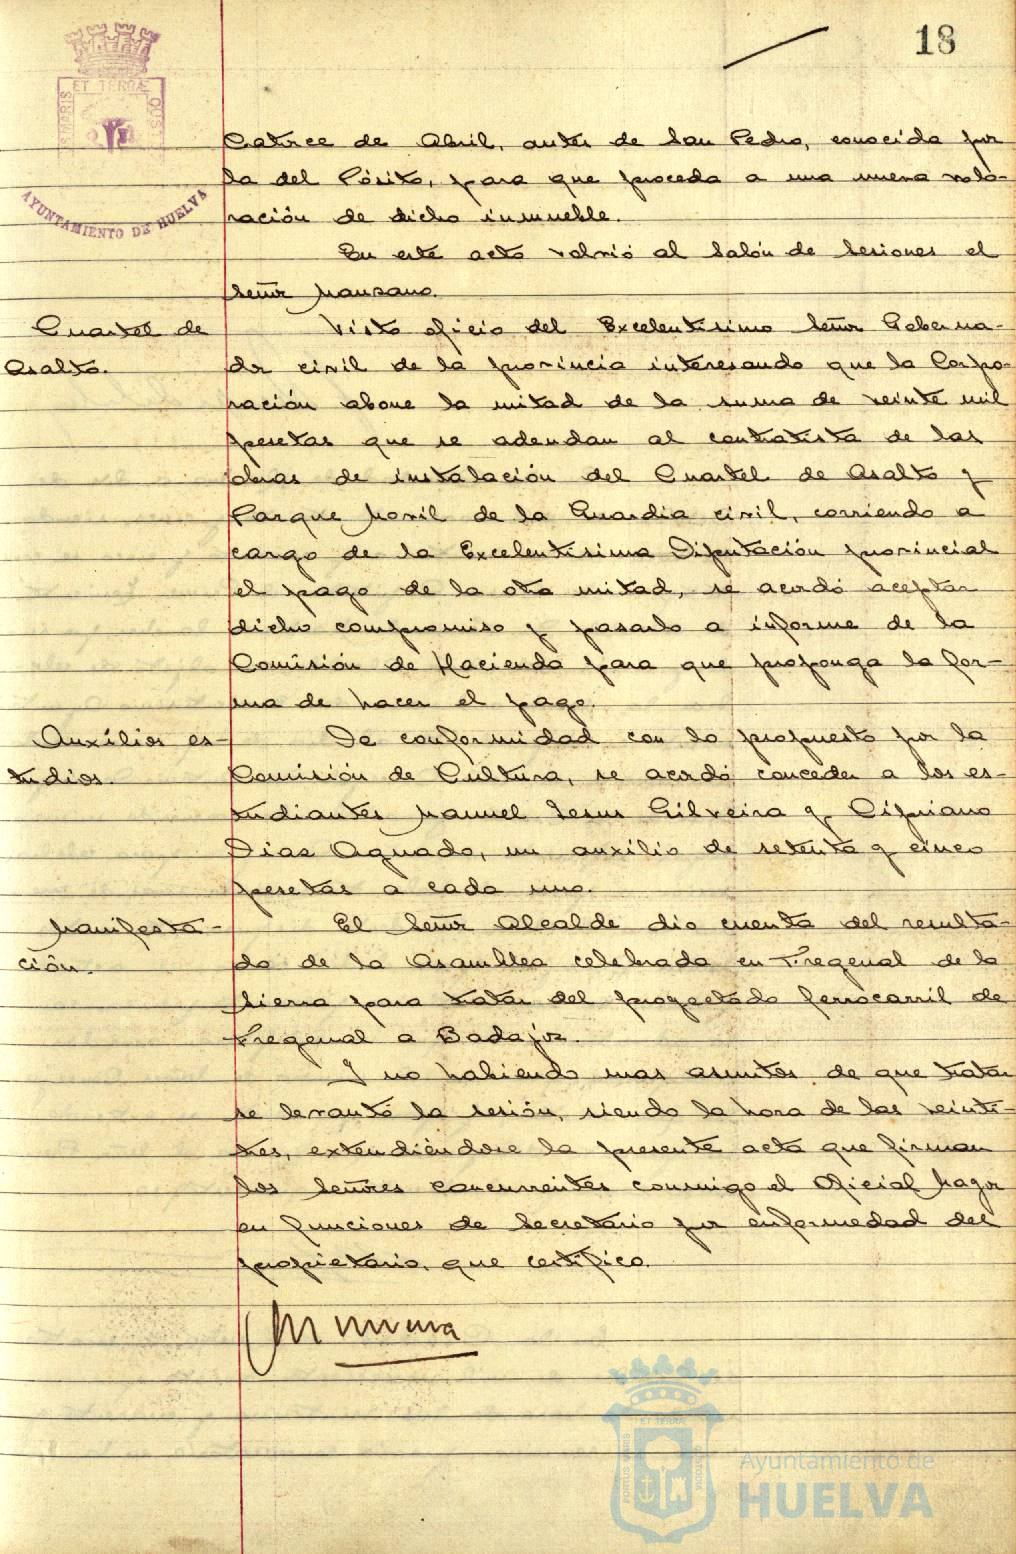 18
ET TERRÆ
MARIS
AYUNTAMIENTO DE HUELVA
Catorce de Abril, antes de San Pedro, conocida por
la del Pósito, para que proceda a una nueva valo-
ración de dicho inmueble.
En este acto volvió al Salón de Sesiones el
Señor Manzano.
Cuartel de
Asalto.
Visto oficio del Excelentísimo Señor Goberna-
dor civil de la provincia interesando que la Corpo-
ración abone la mitad de la suma de veinte mil
pesetas que se adeudan al contratista de las
obras de instalación del Cuartel de Asalto y
Parque Movil de la Guardia civil, corriendo a
cargo de la Excelentísima Diputación provincial
el pago de la otra mitad, se acordó aceptar
dicho compromiso y pasarlo a informe de la
Comisión de Hacienda para que proponga la for-
ma de hacer el pago.
Auxilios es-
tudios.
De conformidad con lo propuesto por la
Comisión de Cultura, se acordó conceder a los es-
tudiantes Manuel Jesus Gilveira y Cipriano
Dias Aguado, un auxilio de setenta y cinco
pesetas a cada uno.
Manifesta-
ción.
El Señor Alcalde dio cuenta del resulta-
do de la Asamblea celebrada en Fregenal de la
Sierra para tratar del proyectado ferrocarril de
Fregenal a Badajoz.
Y no habiendo mas asuntos de que tratar
se levantó la sesión, siendo la hora de las veinti-
tres, extendiéndose la presente acta que firman
los Señores concurrentes conmigo el Oficial Mayor
en funciones de Secretario por enfermedad del
propietario, que certifico.
ET TERRÆ
PORTUS MARIS
CUSTODIA
Ayuntamiento de
HUELVA